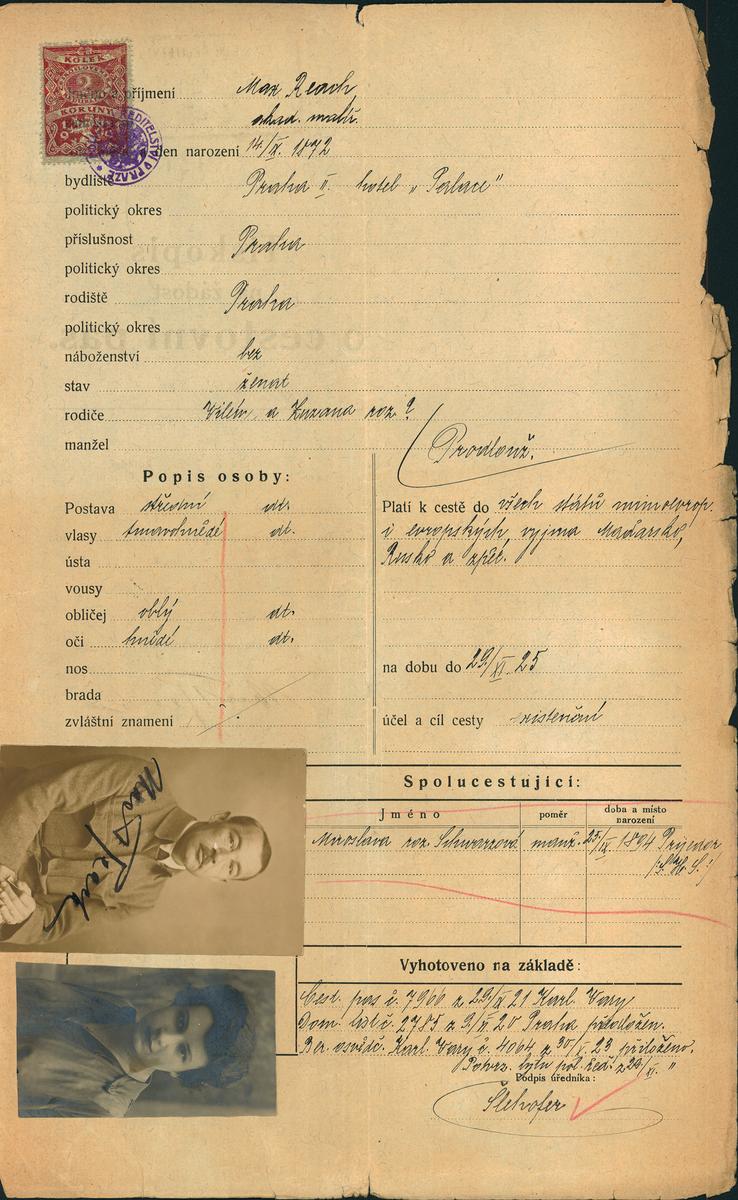 KOLEK
2
KORUNY
jméno a příjmení Max Reach
akad. malíř.
den narození 14/X. 1872
bydliště Praha II. hotel „Palace"
politický okres
příslušnost Praha
politický okres
rodiště Praha
politický okres
náboženství bez
stav ženat
rodiče Vilém a Zuzana roz. ?
manžel
Prodlouž.
Popis osoby:
Postava střední dt.
vlasy tmavohnědé dt.
ústa
vousy
obličej oblý dt.
oči hnědé dt.
nos
brada
zvláštní znamení
Platí k cestě do všech států mimoevrop.
i evropských, vyjma Maďarsko,
Rusko a zpět.
na dobu do 29/XI. 25
účel a cíl cesty existenční
Max Reach
Spolucestující:
Jméno poměr doba a místo narození
Miroslava roz. Schwarzová manž. 25/IX. 1894 Prijedor
Vyhotoveno na základě:
Cest. pas č. 7966 z 29/X 21 Karl. Vary
Dom. list č. 2785 z 9/II. 20 Praha přiložen.
Ber. osvědč. Karl. Vary č. 4064 z 30/I. 23 přiloženo.
Potvrz. bytu pol. řed. z 24/XI. "
Podpis úředníka:
Šlehofer